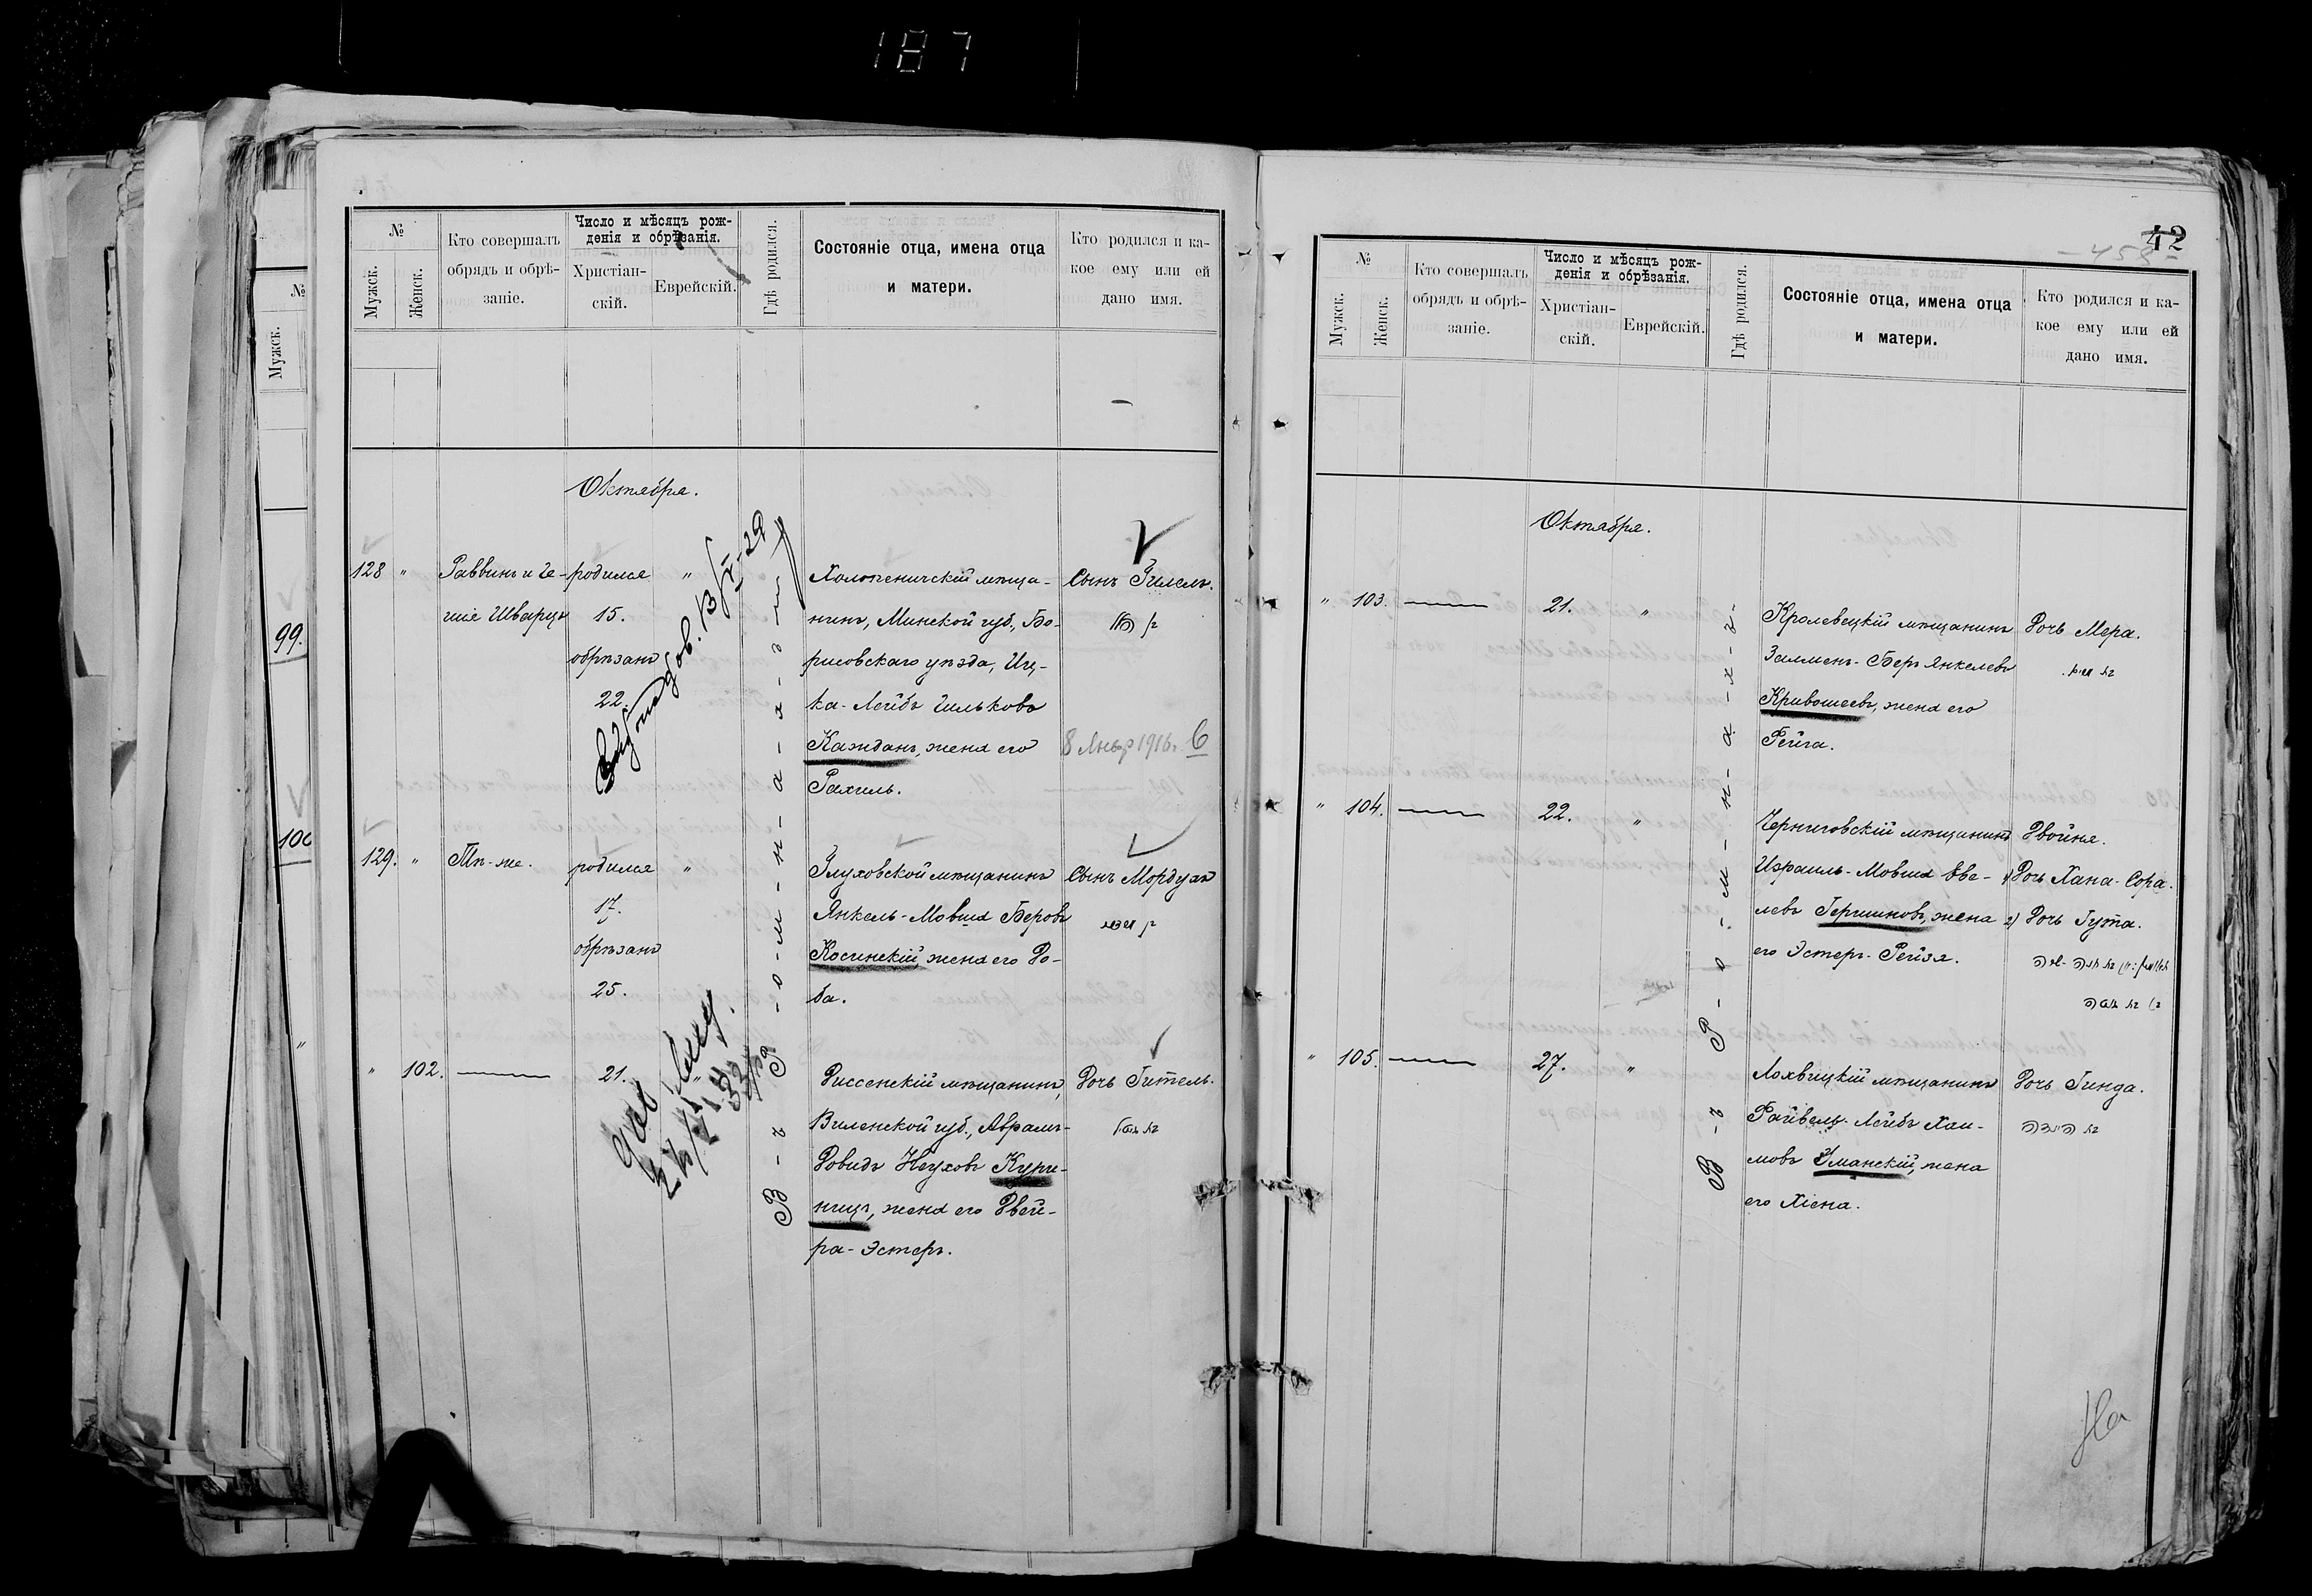 187
№
Мужск.
99.
100
№
Мужск.
Женск.
Кто совершалъ
обрядъ и обрѣ-
заніе.
Число и мѣсяцъ рож-
денія и обрѣзанія.
Христіан-
скій.
Еврейскій.
Гдѣ родился.
Состояніе отца, имена отца
и матери.
Кто родился и ка-
кое ему или ей
дано имя.
Октября.
128
"
Раввинъ и Ге-
ніе Шварцъ
родился
15.
обрѣзанъ
22.
"
13/X-29
Холопеничскій мѣща-
нинъ, Минской губ., Бо-
рисовскаго уѣзда, Иц-
ка-Лейбъ Гильковъ
Кажданъ, жена его
Рахиль.
Сынъ Гилель.
8 Янвр 1916г. 6
129.
"
Тѣ-же.
родился
17.
обрѣзанъ
25.
"
Глуховской мѣщанинъ
Янкель-Мовша Беровъ
Косинскій, жена его До-
ба.
Сынъ Мордухъ
"
102.
21.
"
Диссенскій мѣщанинъ,
Виленской губ., Абрамъ-
Довидъ Неуховъ Купи-
ницъ, жена его Двей-
ра-Эстеръ.
Дочь Гитель.
В-ъ Р-о-м-н-а-х-ъ
42
№
Мужск.
Женск.
Кто совершалъ
обрядъ и обрѣ-
заніе.
Число и мѣсяцъ рож-
денія и обрѣзанія.
Христіан-
скій.
Еврейскій.
Гдѣ родился.
Состояніе отца, имена отца
и матери.
Кто родился и ка-
кое ему или ей
дано имя.
Октября.
"
103.
21.
"
Кролевецкій мѣщанинъ
Залменъ-Беръ Янкелевъ
Кривошеевъ, жена его
Рейга.
Дочь Мера.
"
104.
22.
"
Черниговскій мѣщанинъ
Израиль-Мовша Еве-
левъ Гершиновъ, жена
его Эстеръ-Рейзя.
Двойня.
1) Дочь Хана-Сора.
2) Дочь Гута.
"
105.
27.
"
Лохвицкій мѣщанинъ
Файвель-Лейбъ Хаи-
мовъ Уманскій, жена
его Хіена.
Дочь Гинда.
В-ъ Р-о-м-н-а-х-ъ
На